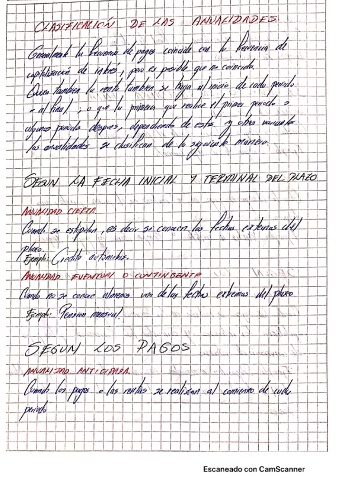 CLASIFICACION DE LAS ANUALIDADES
Generalmente la frecuencia de pagos coincide con la frecuencia de
capitalizacion de interes, pero es posible que no coincida.
tambien la renta tambien se haga al inicio de cada periodo
o al final, o que la primera que se realice el primer periodo o
algunos periodos despues, dependiendo de estas y otras variantes
las anualidades se clasifican de la siguiente manera.
SEGUN LA FECHA INICIAL Y TERMINAL DEL PLAZO
ANUALIDAD CIERTA
Cuando se estipulan, es decir se conocen las fechas extremas del
plazo.
Ejemplo: Credito automotriz.
ANUALIDAD EVENTUAL O CONTINGENTE
Cuando no se conoce al menos una de las fechas extremas del plazo
Ejemplo: Pension mensual.
SEGUN LOS PAGOS
ANUALIDAD ANTICIPADA
Cuando los pagos o las rentas se realizan al comienzo de cada
periodo
Escaneado con CamScanner